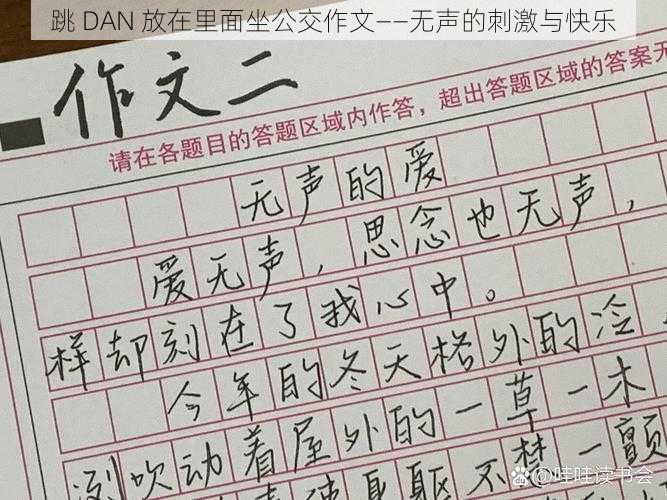 跳 DAN 放在里面坐公交作文——无声的刺激与快乐
作文二
请在各题目的答题区域内作答，超出答题区域的答案无
无声的爱
爱无声，思念也无声，
样却刻在了我心中。
今年的冬天格外的冷
冽吹动着屋外的一草一木
身躯不禁一颤
哇哇读书会